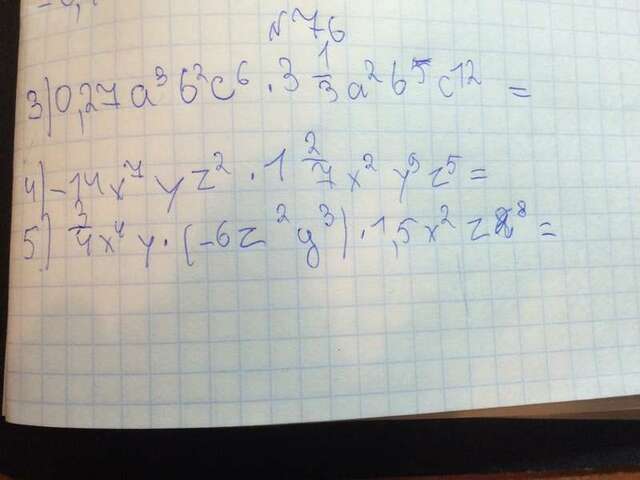 №76
3) 0,27a³b²c⁶ · 3 1/3 a²b⁵c¹² =
4) -14x⁷yz² · 1 2/7 x²y⁹z⁵ =
5) 3/4 x⁴y · (-6z²y³) · 1,5x²z⁸ =